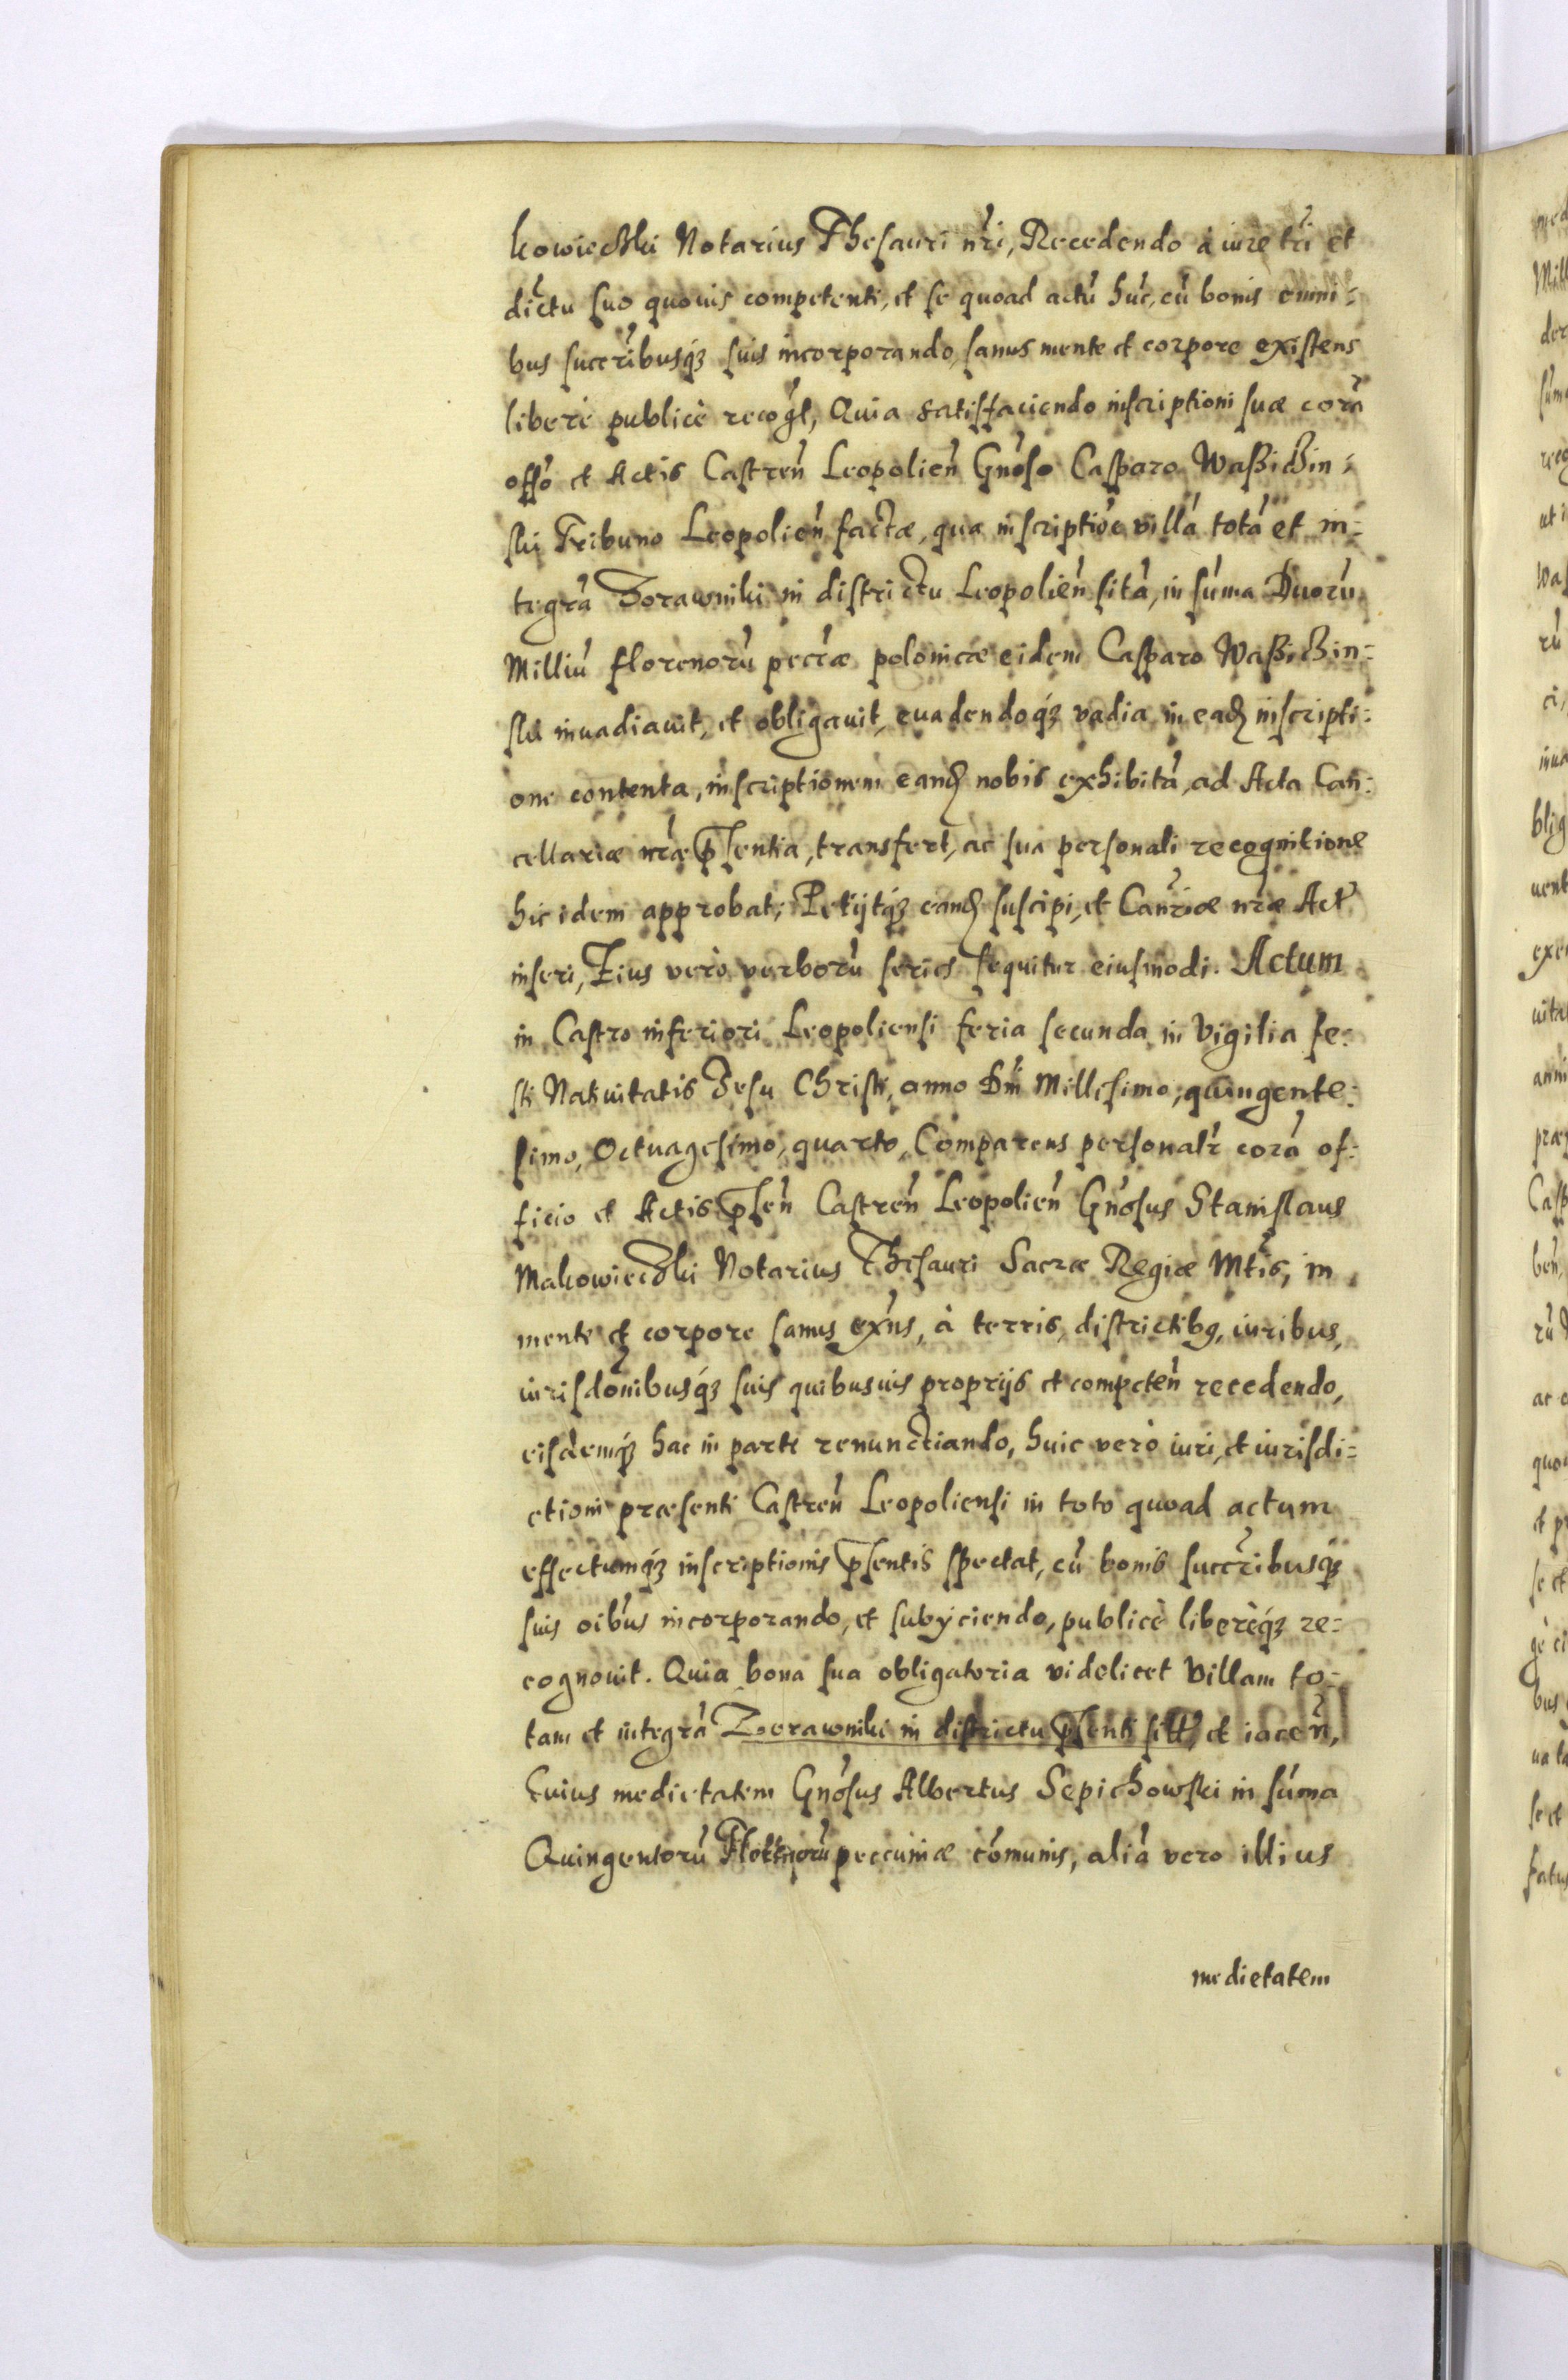 kowieczki Notarius Thesauri nr̃i, Recedendo à iure tr̃i et
dictu suo quovis competenti, et se quoad actũ hũc, cũ bonis omni=
bus succr̃ibusq́ʒ suis incorporando, sanus mente et corpore existens
liberè publicè recõgt, Quia satisfaciendo inscriptioni suæ corã
offõ et Actis Castreñ Leopolieñ Gñoso Casparo Waßiczin=
ski Tribuno Leopolieñ factæ, qua inscriptiõe villã totã et in=
tegrã Zorawniki in districtu Leopolieñ sitã, in sũma Duorũ
Milliũ florenorũ pecc̃æ polonicæ eidem Casparo Waßiczin=
ski invadiavit, et obligavit, evadendoq́ʒ vadia in eadʒ inscripti=
one contenta, inscriptionem eandʒ nobis exhibitã, ad Acta Can=
cellariæ nr̃æ p̃sentia, transfert, ac sua personali recognitione
hic idem approbat, Petijtq́ʒ eandʒ suscipi, et Canr̃iæ nr̃æ Act̃
inseri, Eius verò verborũ series sequitur eiusmodi. Actum
in Castro inferiori Leopoliensi feria secunda in Vigilia fe=
sti Nativitatis Jesu Christi, anno Dñi Millesimo, quingente=
simo, Octuagesimo, quarto, Comparens personalr̃ corã of=
ficio et Actis p̃señ Castreñ Leopolieñ Gñosus Stanislaus
Makowieczki Notarius Thesauri Sacræ Regiæ Mt̃is, in
mente et corpore sanus exñs, à terris, districtibꝯ, iuribus,
iurisdõnibusq́ʒ suis quibusvis proprijs et competeñ recedendo,
eisdemq́ʒ hac in parte renunctiando, huic verò iuri, et iurisdi=
ctioni præsenti Castreñ Leopoliensi in toto quoad actum
effectumq́ʒ inscriptionis p̃sentis spectat, cũ bonis succr̃ibusq́ʒ
suis oĩbus incorporando, et subÿciendo, publicè liberèq́ʒ re=
cognovit. Quia bona sua obligatoria videlicet Villam to=
tam et integrã Zorawniki in districtu p̃senti sitt̃, et iaceñ,
Cuius medietatem Gñosus Albertus Sepichowski in sũma
Quingentorũ peccuniæ cõmunis, aliã vero illius
medietatem